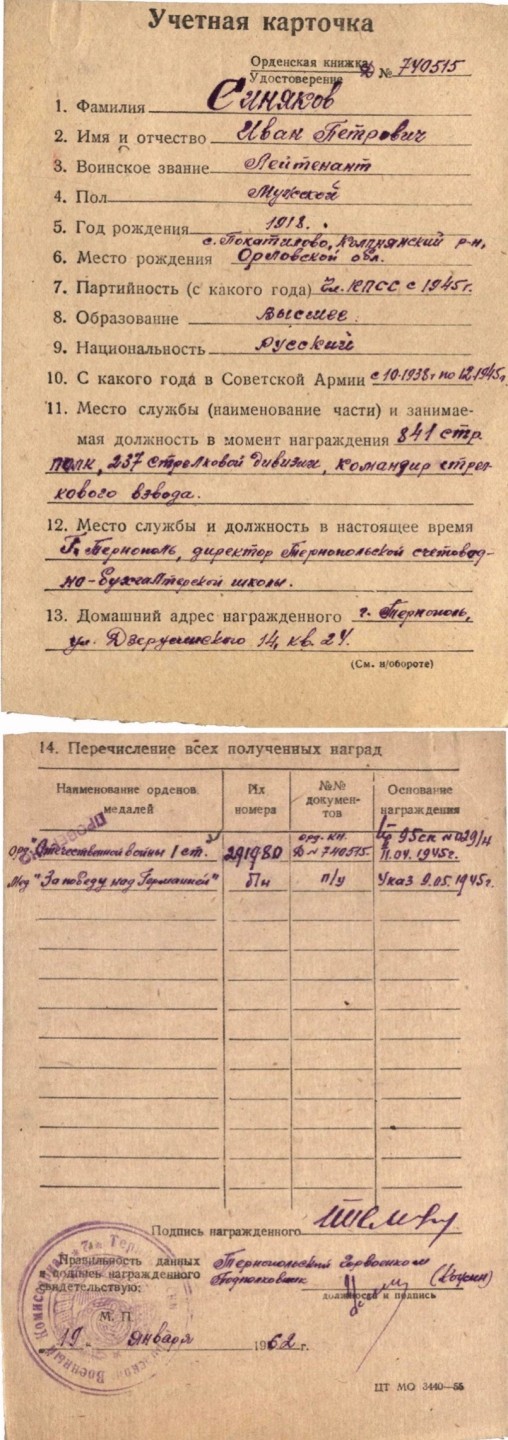 Учетная карточка
Орденская книжка
Удостоверение Д № 740515
1. Фамилия Синяков
2. Имя и отчество Иван Петрович
3. Воинское звание Лейтенант
4. Пол Мужской
5. Год рождения 1918.
с. Покатилово, Колпнянский р-н,
6. Место рождения Орловской обл.
7. Партийность (с какого года) Чл. КПСС с 1945г.
8. Образование Высшее
9. Национальность Русский
10. С какого года в Советской Армии с 10.1938г по 12.1945г
11. Место службы (наименование части) и занимае-
мая должность в момент награждения 841 стр.
полк, 237 стрелковой дивизии, командир стрел-
кового взвода.
12. Место службы и должность в настоящее время
г. Тернополь, директор Тернопольской счетовод-
но-бухгалтерской школы.
13. Домашний адрес награжденного г. Тернополь,
ул. Дзержинского 14, кв. 24.
(См. н/обороте)
14. Перечисление всех полученных наград
Наименование орденов, медалей
Их номера
№№ докумен-тов
Основание награждения
Орд. "Отечественной войны I ст." 291980 орд. кн. Д № 740515. Пр 95ск №029/н 11.04.1945г.
Мед "За победу над Германией" б/н п/у Указ 9.05.1945г.
Подпись награжденного
Правильность данных
и подпись награжденного
свидетельствую:
Тернопольский Горвоенком
Подполковник
должность и подпись
М. П.
19 января 1962 г.
ЦТ МО 3440—55